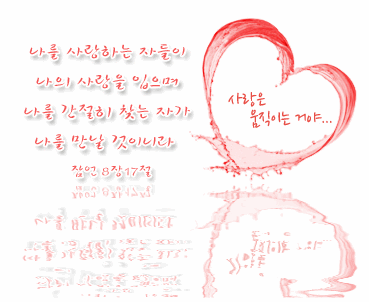 나를 사랑하는 자들이
나의 사랑을 입으며
나를 간절히 찾는 자가
나를 만날 것이니라
잠언 8장17절
사랑은
움직이는 거야...